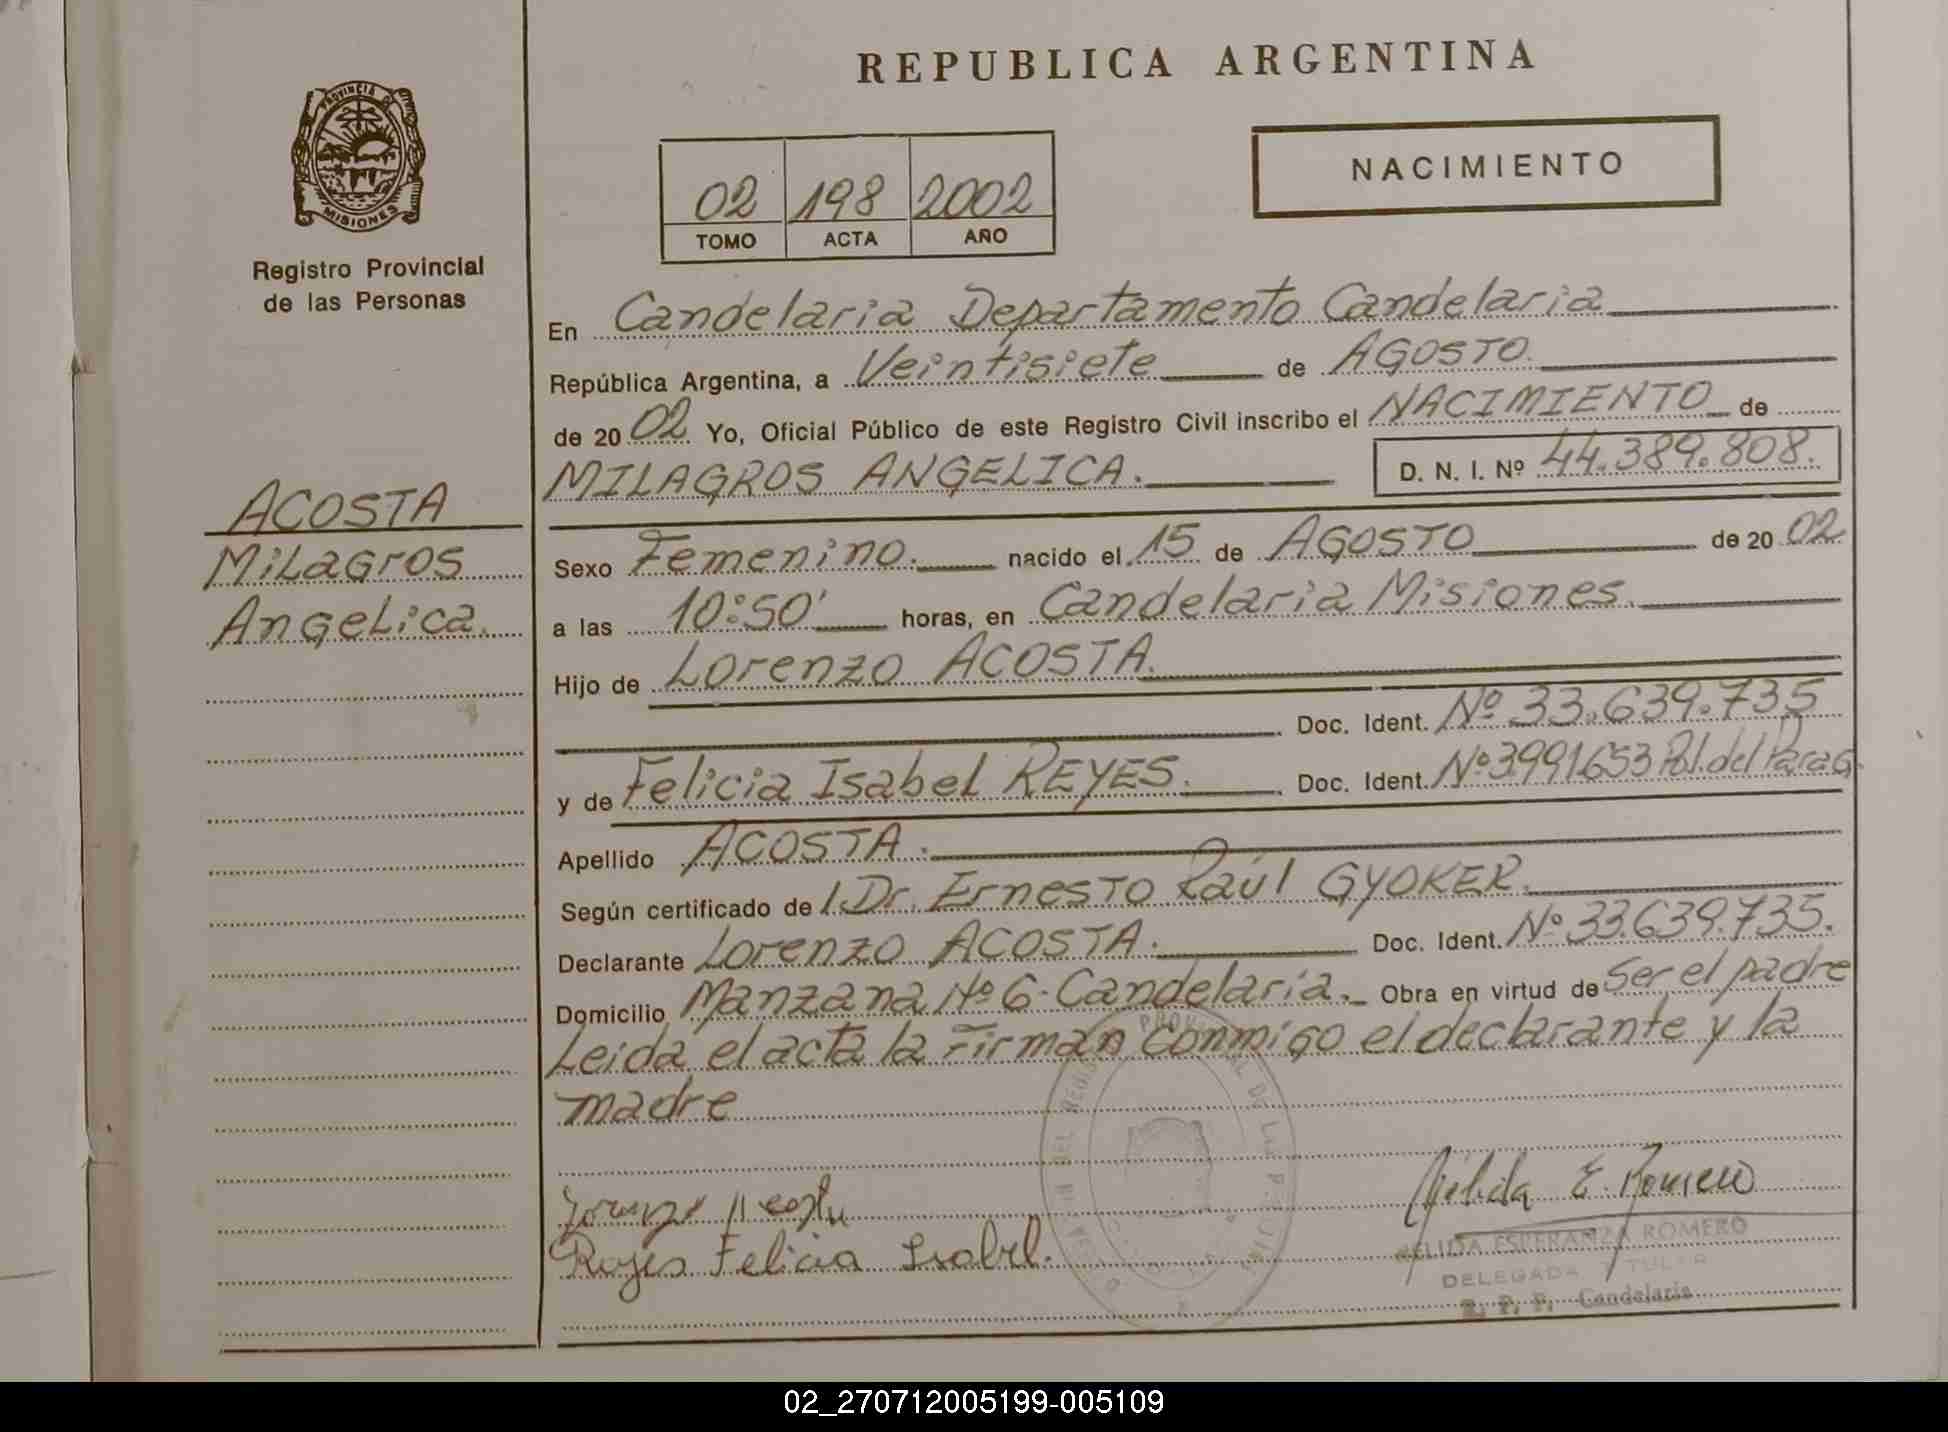 REPUBLICA ARGENTINA
PROVINCIA DE
MISIONES
Registro Provincial
de las Personas
NACIMIENTO
02 198 2002
TOMO ACTA AÑO
En Candelaria Departamento Candelaria
República Argentina, a Veintisiete de AGOSTO
de 20 02 Yo, Oficial Público de este Registro Civil inscribo el NACIMIENTO de
MILAGROS ANGELICA. D. N. I. Nº 44.389.808.
ACOSTA
Milagros
Angelica.
Sexo Femenino. nacido el 15 de AGOSTO de 20 02
a las 10:50' horas, en Candelaria Misiones.
Hijo de Lorenzo ACOSTA.
Doc. Ident. Nº 33.639.735
y de Felicia Isabel REYES. Doc. Ident. Nº 3.991.653 Pol. del Parag.
Apellido ACOSTA.
Según certificado de l Dr. Ernesto Raúl GYOKER.
Declarante Lorenzo ACOSTA. Doc. Ident. Nº 33.639.735.
Domicilio Manzana Nº 6-Candelaria. Obra en virtud de Ser el padre
Leida el acta la Firman conmigo el declarante y la
madre
Lorenzo Acosta
Reyes Felicia Isabel.
Nélida E. Romero
NELIDA ESPERANZA ROMERO
DELEGADA TITULAR
R. P. P. Candelaria
02_270712005199-005109